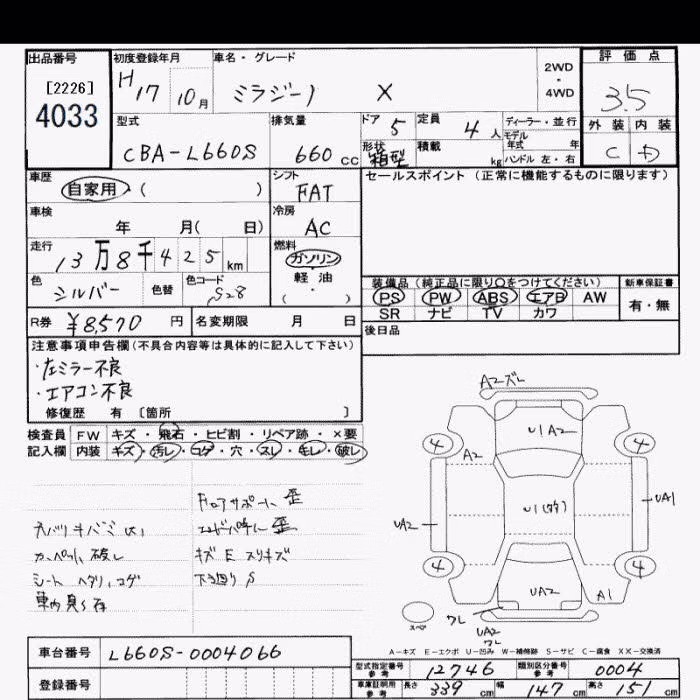 出品番号 初度登録年月 車名・グレード 2WD・4WD 評価点
[2226] H17 10月 ミラジーノ X 3.5
4033 外装 内装
C D
型式 排気量 ドア 5 定員 4人 ディーラー・並行
CBA-L660S 660cc 形状 箱型 積載 kg モデル年式 年
ハンドル 左・右
車歴 自家用・( ) シフト FAT セールスポイント(正常に機能するものに限ります)
車検 年 月( 日) 冷房 AC
走行 13万8千425km 燃料 ガソリン
軽油・( )
色 シルバー 色替 色コード S28
装備品(純正品に限り○をつけてください) 新車保証書
PS PW ABS エアB AW 有・無
SR ナビ TV カワ
R券 ¥8,570円 名変期限 月 日 後日品
注意事項申告欄(不具合内容等は具体的に記入して下さい)
・左ミラー不良
・エアコン不良
修復歴 有 [箇所 ]
検査員 FW キズ・飛石・ヒビ割・リペア跡・×要
記入欄 内装 キズ・汚レ・コゲ・穴・スレ・キレ・破レ
フロアサポートに歪
カーペット破レ キズ E スリキズ
シート ヘタリ、コゲ 下廻り S
車内臭イ有
A2ズレ
U1A2
4 4
A2
UA2 UA1
4 4
UA2 A1
スペア ワレ
UA2
ワレ
A-キズ E-エクボ U-凹み W-補修跡 S-サビ C-腐食 XX-交換済
車台番号 L660S-0004066
登録番号
型式指定番号 参考 12746 類別区分番号 参考 0004
車庫証明用 参考 長さ 339cm 幅 147cm 高さ 151cm